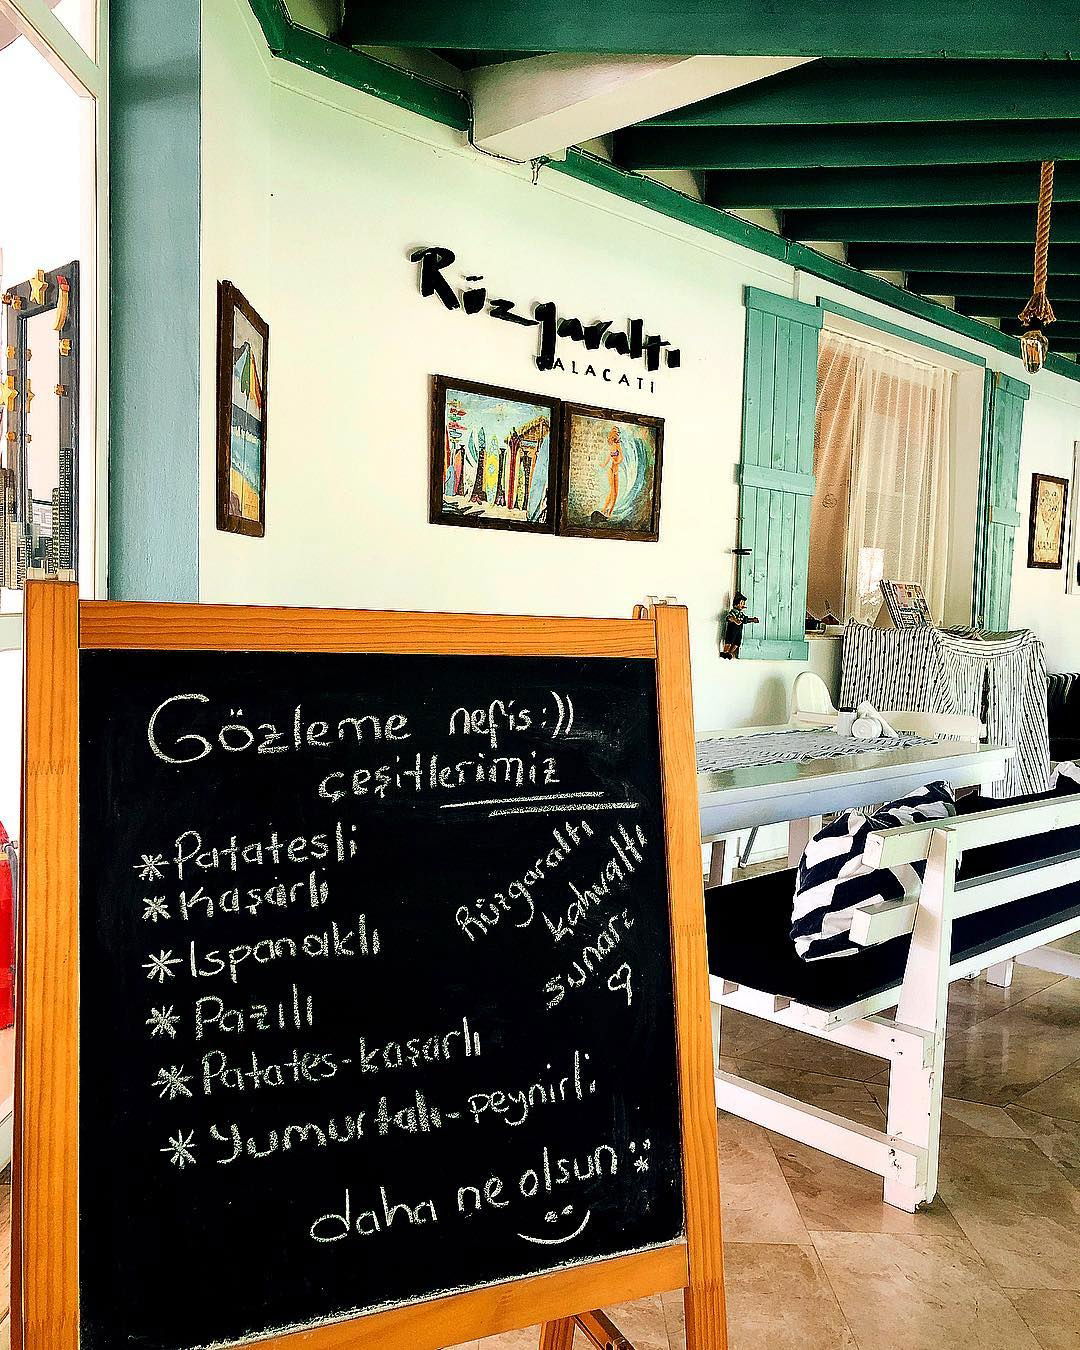 Rüzgaraltı
ALACATI
Gözleme nefis:))
çeşitlerimiz
*Patatesli
*Kaşarlı
*Ispanaklı
*Pazılı
*Patates-kaşarlı
*Yumurtalı-peynirli
daha ne olsun
Rüzgaraltı
kahvaltı
sunar